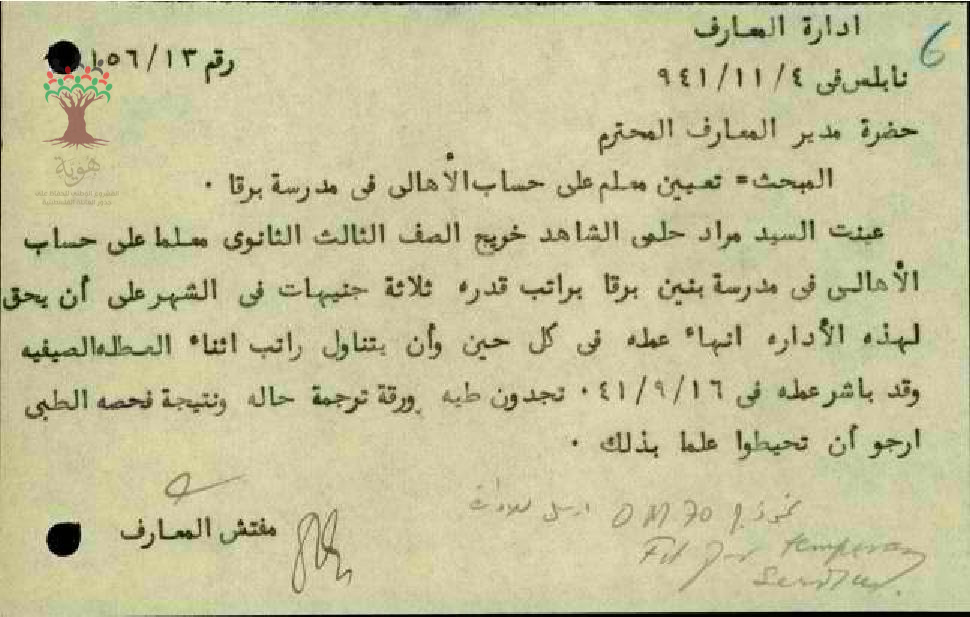 ادارة المعارف
6
رقم ١٥٦/١٣
نابلس فى ٩٤١/١١/٤
حضرة مدير المعارف المحترم
المبحث= تعيين معلم على حساب الأهالى فى مدرسة برقا ٠
عينت السيد مراد حلمى الشاهد خريج الصف الثالث الثانوى معلما على حساب
الأهالـى فى مدرسة بنين برقا براتب قدره ثلاثة جنيهات فى الشهر على أن يحق
لهذه الأداره انهاء عمله فى كل حين وأن يتناول راتب اثناء العطله الصيفيه
وقد باشر عمله فى ٤١/٩/١٦ ٠ تجدون طيه ورقة ترجمة حاله ونتيجة فحصه الطبى
ارجو أن تحيطوا علما بذلك ٠
مفتش المعارف
ارسل
Fit for temperary
Service.
هوية